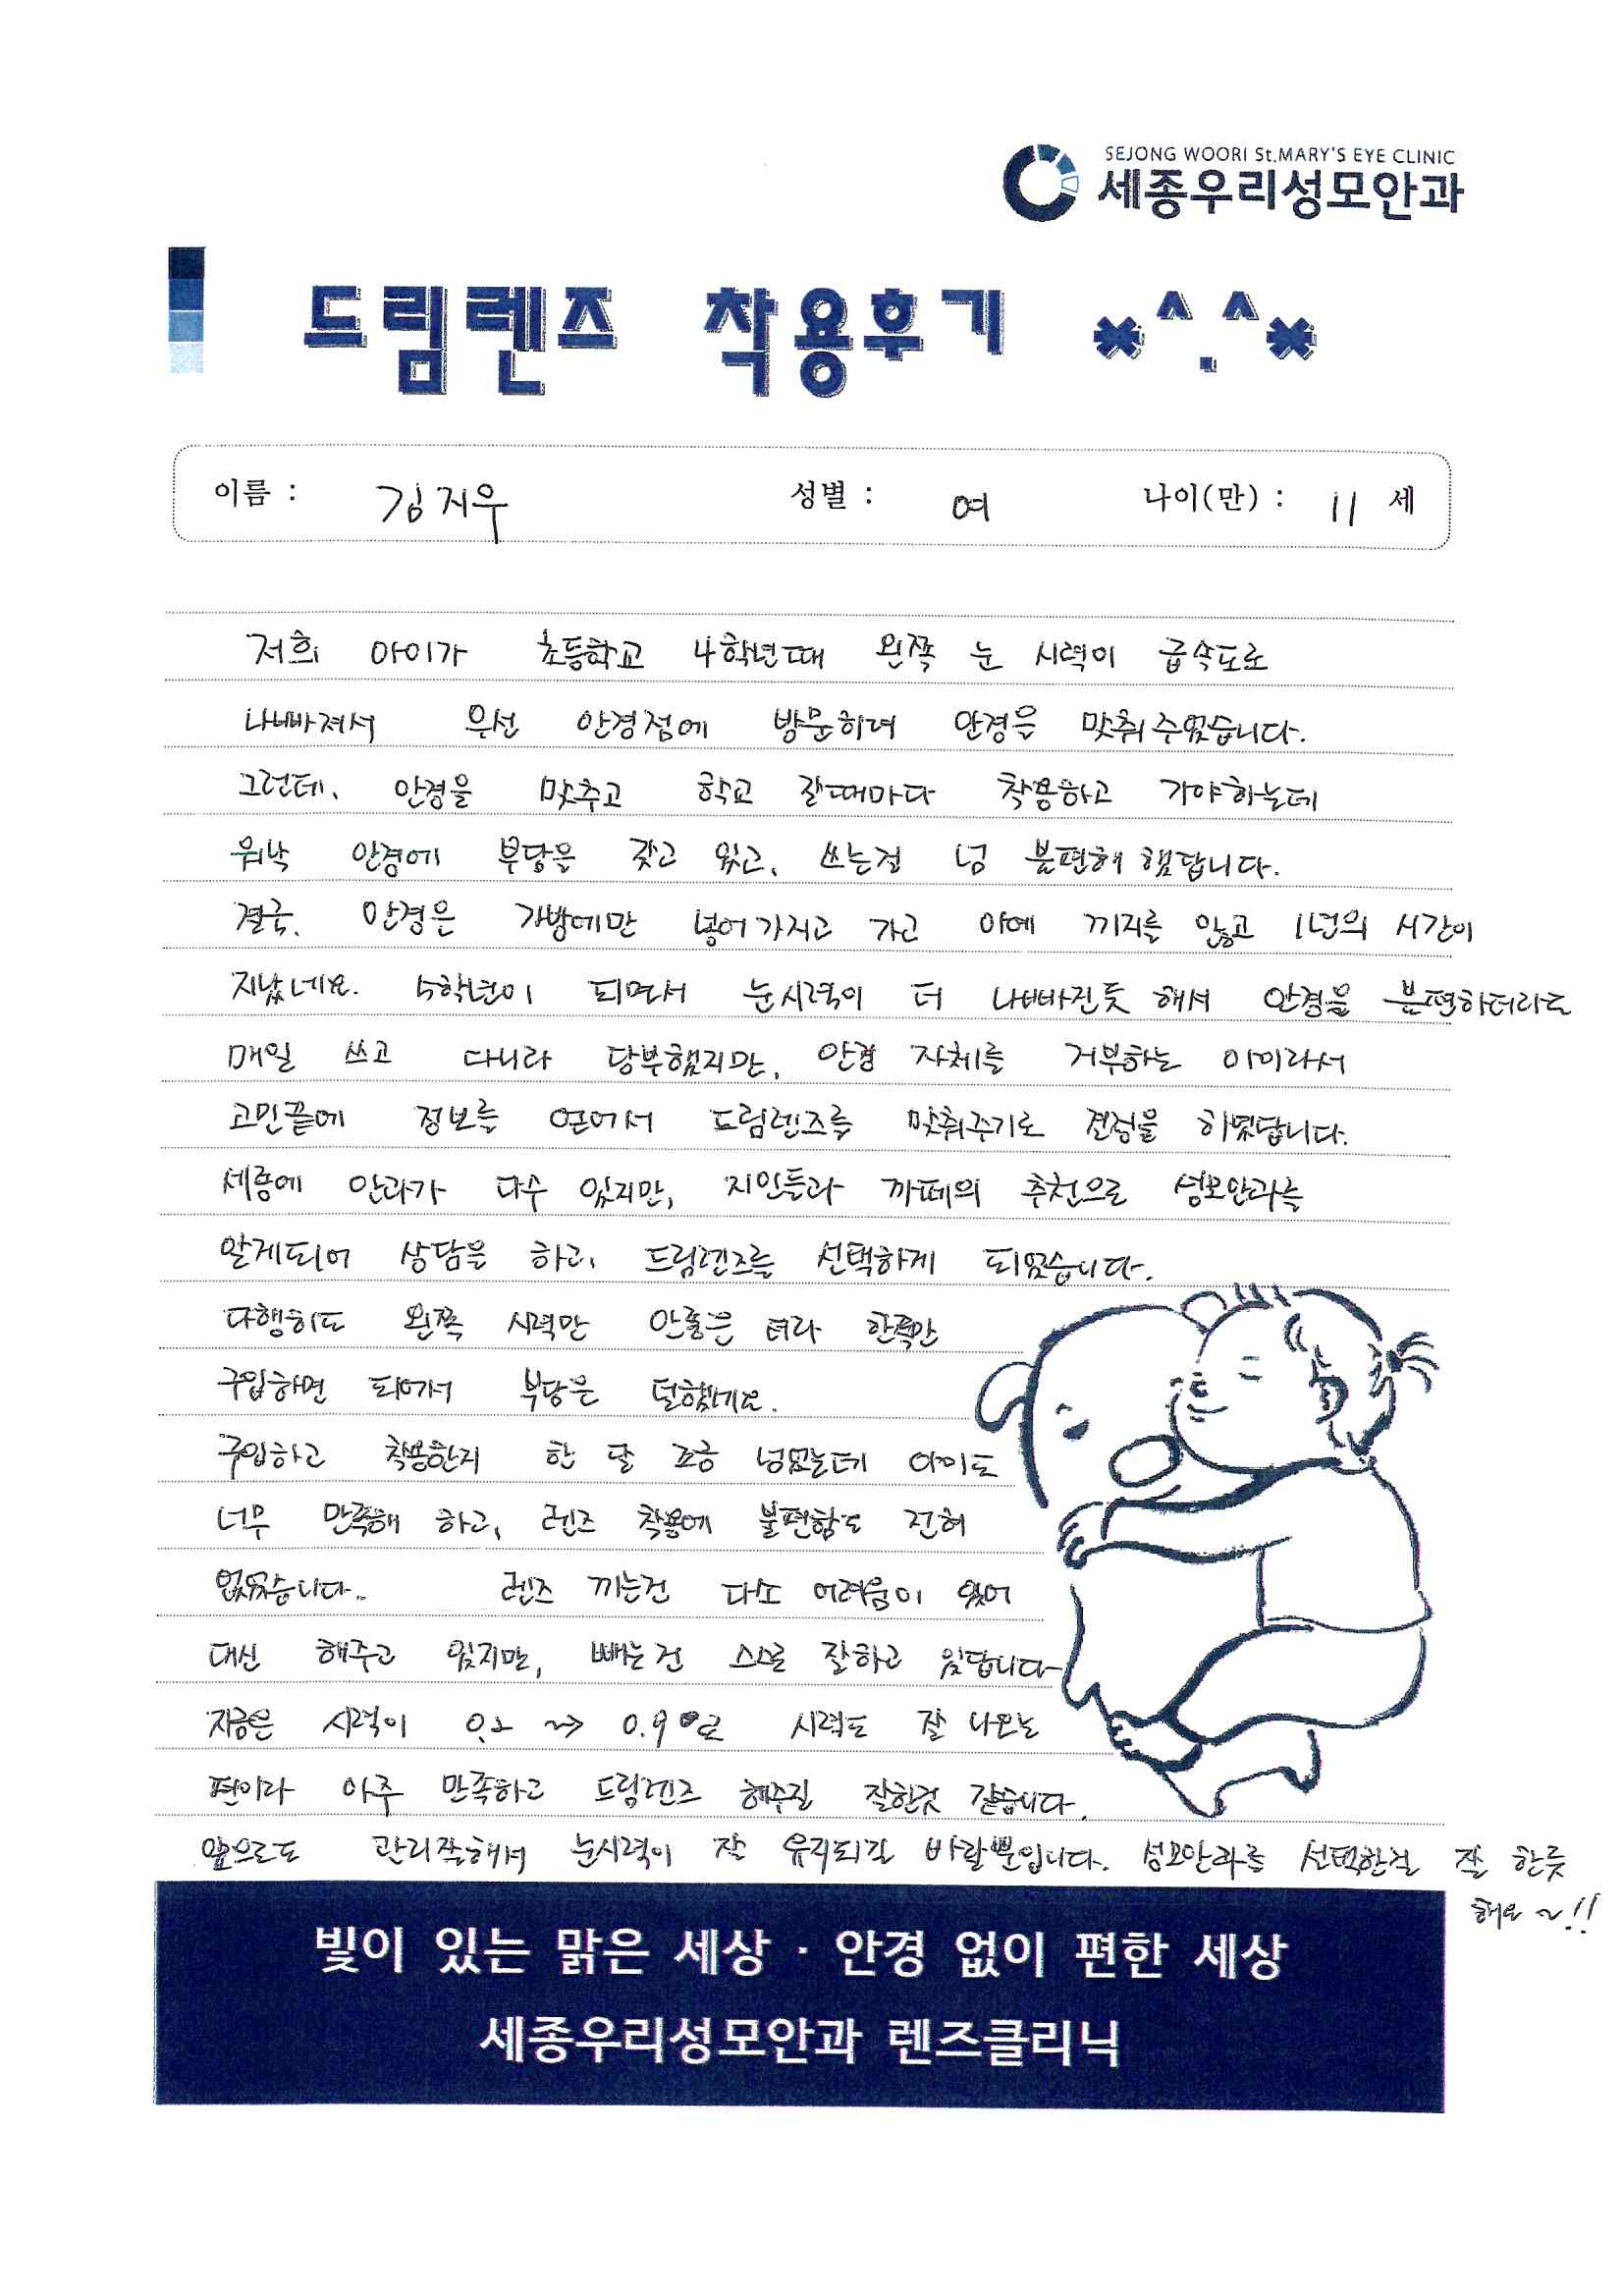 SEJONG WOORI St.MARY'S EYE CLINIC
세종우리성모안과
드림렌즈 착용후기 *^.^*
이름 : 김지우 성별 : 여 나이(만) : 11 세
저희 아이가 초등학교 4학년때 왼쪽 눈 시력이 급속도로
나빠져서 우선 안경점에 방문하여 안경을 맞춰주었습니다.
그런데, 안경을 맞추고 학교 갈때마다 착용하고 가야하는데
워낙 안경에 부담을 갖고 있고, 쓰는걸 넘 불편해 했답니다.
결국, 안경은 가방에만 넣어가지고 가고 아예 끼지를 않고 1년의 시간이
지났네요. 5학년이 되면서 눈시력이 더 나빠진듯 해서 안경을 불편하더라도
매일 쓰고 다니라 당부했지만, 안경 자체를 거부하는 아이라서
고민끝에 정보를 얻어서 드림렌즈를 맞춰주기로 결정을 하였답니다.
세종에 안과가 다수 있지만, 지인들과 까페의 추천으로 성모안과를
알게되어 상담을 하고, 드림렌즈를 선택하게 되었습니다.
다행히도 왼쪽 시력만 안좋은 터라 한쪽만
구입하면 되어서 부담은 덜했네요.
구입하고 착용한지 한 달 조금 넘었는데 아이도
너무 만족해 하고, 렌즈 착용에 불편함도 전혀
없었습니다. 렌즈 끼는건 다소 어려움이 있어
대신 해주고 있지만, 빼는건 스스로 잘하고 있답니다
지금은 시력이 0.2 ~> 0.9로 시력도 잘 나오는
편이라 아주 만족하고 드림렌즈 해주길 잘한것 같습니다.
앞으로도 관리잘해서 눈시력이 잘 유지되길 바랄뿐입니다. 성모안과를 선택한걸 잘 한듯
해요~!!
빛이 있는 맑은 세상 · 안경 없이 편한 세상
세종우리성모안과 렌즈클리닉